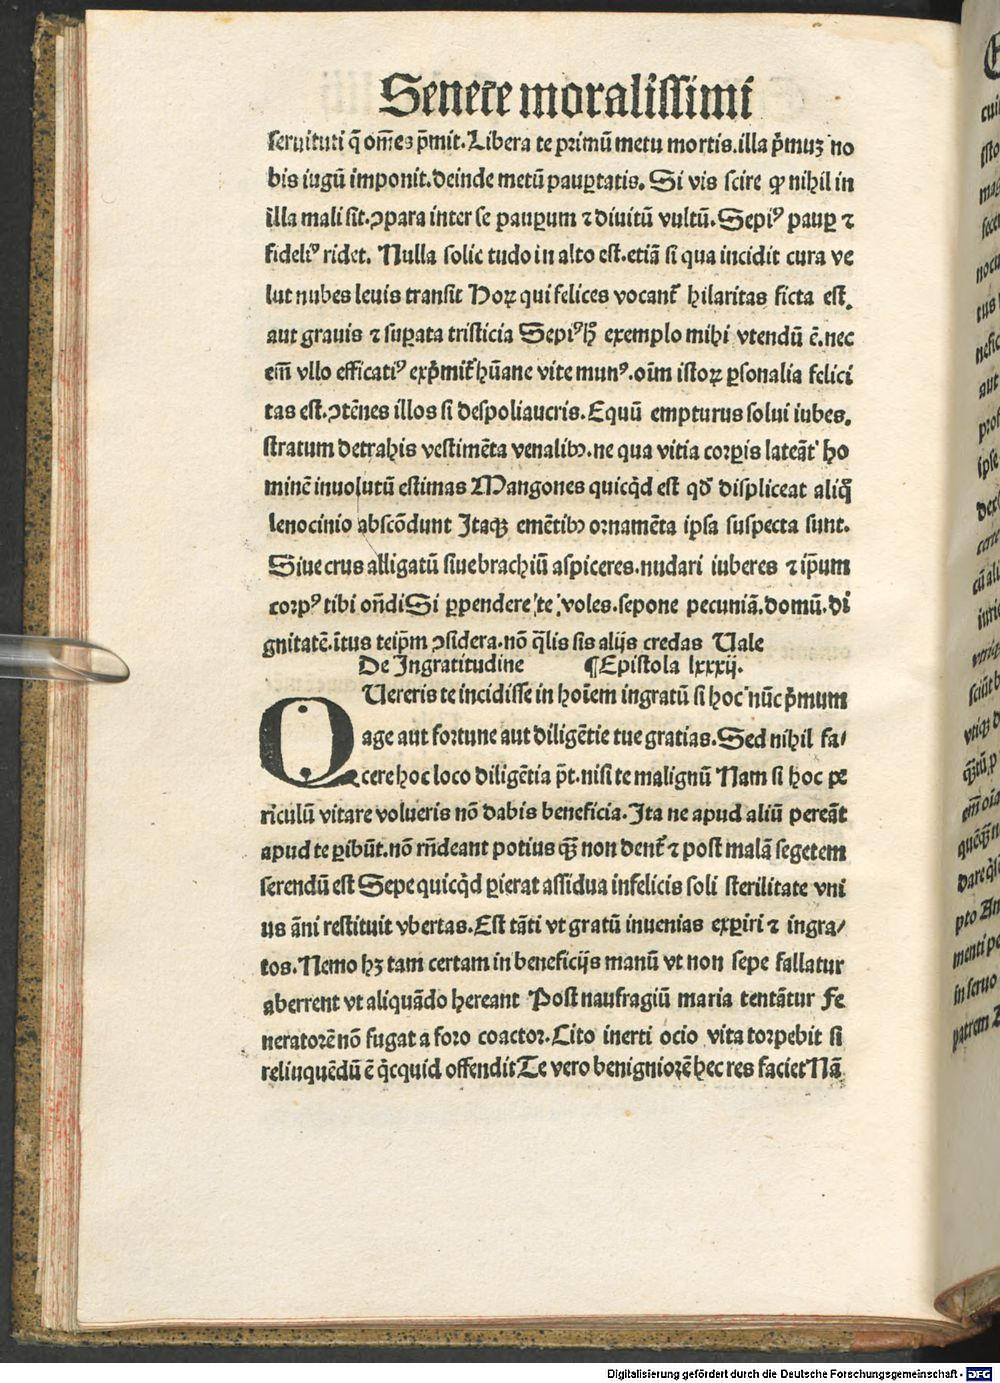 Senece moralissimi
seruituti q̄ om̄es p̄mit. Libera te primū metu mortis. illa p̄muʒ no
bis iugū imponit. deinde metū paup̱tatis. Si vis scire ꝙ nihil in
illa mali sit. ꝯpara inter se paup̱um ⁊ diuitū vultū. Sepiꝰ paup̱ ⁊
fideliꝰ ridet. Nulla solic tudo in alto est. etiā si qua incidit cura ve
lut nubes leuis transit Hoꝝ qui felices vocant᷑ hilaritas ficta est.
aut grauis ⁊ sup̱ata tristicia Sepiꝰ hͦ exemplo mihi vtendū ē. nec
em̄ vllo efficatiꝰ exp̄mit᷑ hūane vite munꝰ. oīm istoꝝ p̱sonalia felici
tas est. ꝯtēnes illos si despoliaueris. Equū empturus solui iubes.
stratum detrahis vestimēta venalibꝰ. ne qua vitia corp̱is lateāt᷑ ho
minē inuolutū estimas Mangones quicq̇d est qd̄ displiceat aliq̄
lenocinio abscōdunt Itaqꝫ emētibꝰ ornamēta ipsa suspecta sunt.
Siue crus alligatū siue brachiū aspiceres. nudari iuberes ⁊ ip̄um
corpꝰ tibi on̄di Si p̱pendere te voles. sepone pecuniā. domū. di
gnitatē. ītus teip̄m ꝯsidera. nō q̄lis sis alijs credas Uale
De Ingratitudine ¶Epistola lxxxij.
QUereris te incidisse in hoīem ingratū si hoc nūc p̄mum
age aut fortune aut diligētie tue gratias. Sed nihil fa/
cere hoc loco diligētia p̄t. nisi te malignū Nam si hoc pe
riculū vitare volueris nō dabis beneficia. Ita ne apud aliū pereāt
apud te p̱ibūt. nō rn̄deant potius qꝫ̄ non dent᷑ ⁊ post malā segetem
serendū est Sepe quicq̇d p̱ierat assidua infelicis soli sterilitate vni
us āni restituit vbertas. Est tāti vt gratū inuenias exp̱iri ⁊ ingra/
tos. Nemo hꝫ tam certam in beneficijs manū vt non sepe fallatur
aberrent vt aliquādo hereant Post naufragiū maria tentātur Fe
neratorē nō fugat a foro coactor. Cito inerti ocio vita torpebit si
relinquēdū ē q̇cquid offendit Te vero benigniorē hec res faciet Nā
Digitalisierung gefördert durch die Deutsche Forschungsgemeinschaft - DFG